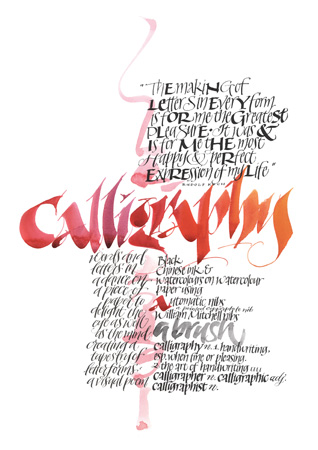 "The making of
Letters in Every form
is for me the Greatest
Pleasure. It was &
is for Me the most
Happy & Perfect
Expression of my Life"
RUDOLF KOCH
calligraphy
words and
letters in
a dance on
a piece of
paper to
delight the
eye as well
as the mind
creating a
tapestry of
letterforms
a visual poem
Black
Chinese ink &
watercolours on watercolour
paper using
Automatic nibs
William Mitchell nibs
a brush
calligraphy n. 1 handwriting,
esp when fine or pleasing.
2 the art of handwriting
calligrapher n. calligraphic adj.
calligraphist n.